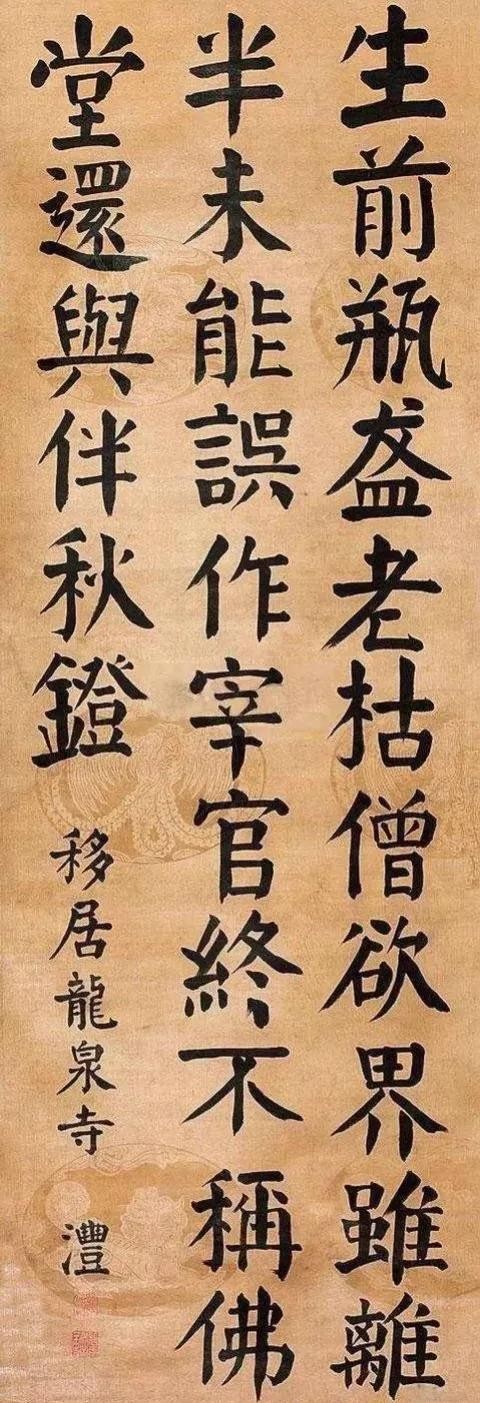 生前瓶盋老枯僧欲界雖離
半未能誤作宰官終不稱佛
堂還與伴秋鐙
移居龍泉寺 灃